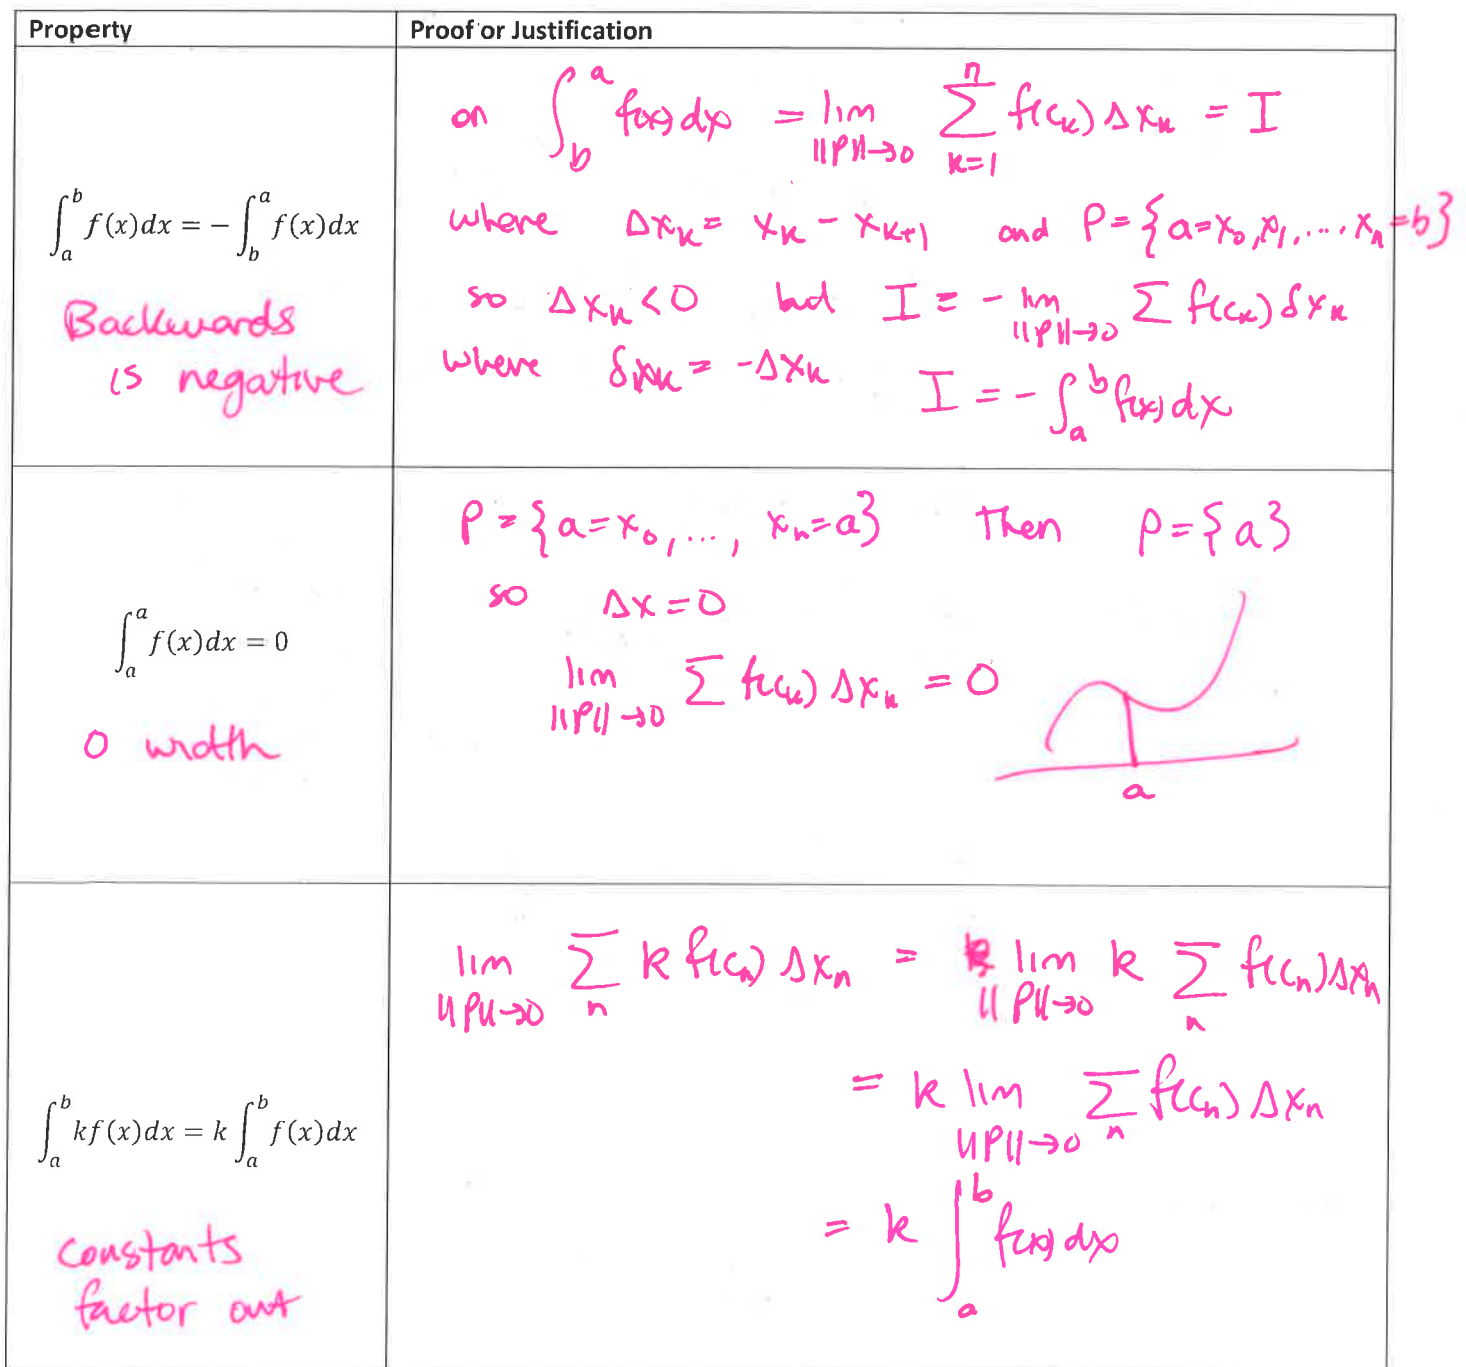 Property
Proof or Justification
∫_a^b f(x)dx = −∫_b^a f(x)dx
Backwards
is negative
on ∫_b^a f(x)dx = lim_{||P||→0} ∑_{k=1}^n f(c_k) Δx_k = I
where Δx_k = x_k − x_{k+1} and P = {a=x_0, x_1, ..., x_n=b}
so Δx_k < 0 but I = −lim_{||P||→0} ∑ f(c_k) δx_k
where δx_k = −Δx_k
I = −∫_a^b f(x)dx
∫_a^a f(x)dx = 0
0 width
P = {a=x_0, ..., x_n=a} Then P={a}
so Δx=0
lim_{||P||→0} ∑ f(c_k) Δx_k = 0
a
∫_a^b kf(x)dx = k∫_a^b f(x)dx
constants
factor out
lim_{||P||→0} ∑_n k f(c_n) Δx_n = lim_{||P||→0} k ∑_n f(c_n) Δx_n
= k lim_{||P||→0} ∑_n f(c_n) Δx_n
= k ∫_a^b f(x)dx